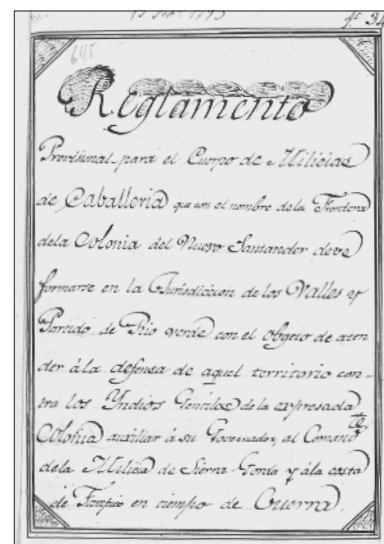 645
Reglamento
Provisional para el Cuerpo de Milicias
de Caballeria que con el nombre dela Frontera
dela Colonia del Nuevo Santander deve
formarse en la Jurisdiccion de los Valles y
Partido de Rio verde con el objeto de aten
der á la defensa de aquel territorio con-
tra los Yndios Gentiles de la expresada
Colonia auxiliar á su Governador, al Comand.te
dela Milicia de Sierra Gorda y á la costa
de Tampico en tiempo de Guerra.